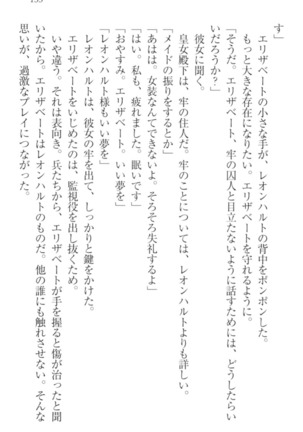 す」
　エリザベートの小さな手が、レオンハルトの背中をポンポンした。
　もっと大きな存在になりたい。エリザベートを守れるように。
「そうだ。エリザベート、牢の囚人と目立たないように話すためには、どうしたらい
いだろうか？」
　彼女に聞く。
　皇女殿下は、牢の住人だ。牢のことについては、レオンハルトよりも詳しい。
「メイドの振りをするとか」
「あはは。女装なんてできないよ。そろそろ失礼するよ」
「はい。私も、疲れました。眠いです」
「おやすみ。エリザベート。いい夢を」
「レオンハルト様もいい夢を」
　レオンハルトは、彼女の牢を出て、しっかりと鍵をかけた。
　エリザベートをいじめたのは、監視役を出し抜くため。
　いや違う。それは表向き。兵たちから、エリザベートが手を握ると傷が治ったと聞
いたから。エリザベートはレオンハルトのものだ。他の誰にも触れさせない。そんな
思いが、過激なプレイにつながった。